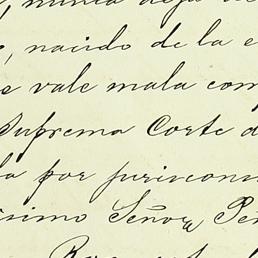 nunca deja
nacido de la e
e vale mala com
Suprema Corte d
la por juriscons
ísimo Señor Pe